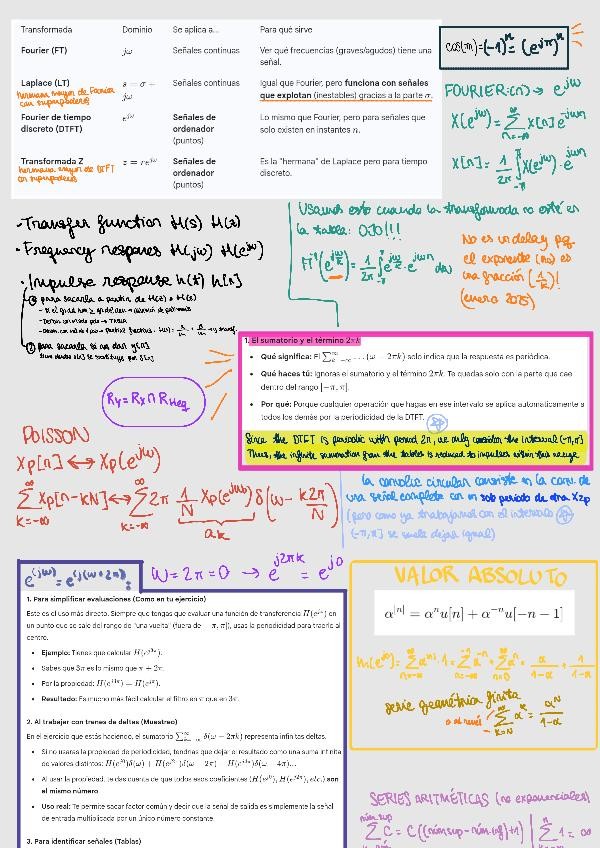 Transformada Dominio Se aplica a... Para qué sirve
Fourier (FT) jω Señales continuas Ver qué frecuencias (graves/agudos) tiene una
señal.
Laplace (LT) s = σ + jω Señales continuas Igual que Fourier, pero funciona con señales
hermana mayor de Fourier
con superpoderes
que explotan (inestables) gracias a la parte σ.
Fourier de tiempo discreto (DTFT) e^{jω} Señales de ordenador (puntos) Lo mismo que Fourier, pero para señales que solo existen en instantes n.
Transformada Z z = re^{jω} Señales de ordenador (puntos) Es la "hermana" de Laplace pero para tiempo discreto.
hermana mayor de DTFT
con superpoderes
cos(πn) = (-1)^n = (e^{jπ})^n
FOURIER: (n) → e^{jω}
X(e^{jω}) = Σ_{n=-∞}^{∞} X[n] e^{-jωn}
X[n] = 1/2π ∫_{-π}^{π} X(e^{jω}) · e^{jωn}
- Transfer function H(s) H(z)
- Frequency respones H(jω) H(e^{jω})
- Impulse response h(t) h[n]
① para sacarla a partir de H(z) o H(s)
② para sacarla si no dan y[n]
Usamos esto cuando la transformada no esté en
la tabla: OJO!!!
F^{-1}(e^{jω/k}) = 1/2π ∫_{-π}^{π} e^{jω/k} · e^{jωn} dω
No es un delay pq
el exponente (nω) es
una fracción (1/k)!
(enero 2025)
Ry = Rx ∩ R_{Heq}
1. El sumatorio y el término 2πk
• Qué significa: El Σ_{k=-∞}^{∞} ...(ω − 2πk) solo indica que la respuesta es periódica.
• Qué haces tú: Ignoras el sumatorio y el término 2πk. Te quedas solo con la parte que cae
dentro del rango [−π, π].
• Por qué: Porque cualquier operación que hagas en ese intervalo se aplica automáticamente a
todos los demás por la periodicidad de la DTFT.
Since the DTFT is periodic with period 2π, we only consider the interval (-π,π]
Thus, the infinite summation from the tables is reduced to impulses within this range
POISSON
Xp[n] ↔ Xp(e^{jω})
Σ_{k=-∞}^{∞} Xp[n-kN] ↔ Σ_{k=-∞}^{∞} 2π 1/N Xp(e^{jω}) δ(ω - k2π/N)
ak
la convolic circular consiste en la conv. de
una señal completa con un solo periodo de otra X2p
(pero como ya trabajamos con el intervalo
(-π,π] se suele dejar igual)
e^{(jω)} = e^{(j(ω+2π))}
ω = 2π = 0 → e^{j2πk} = e^{j0}
1. Para simplificar evaluaciones (Como en tu ejercicio)
Este es el uso más directo. Siempre que tengas que evaluar una función de transferencia H(e^{jω}) en
un punto que se sale del rango de "una vuelta" (fuera de −π, π), usas la periodicidad para traerlo al
centro.
• Ejemplo: Tienes que calcular H(e^{j3π}).
• Sabes que 3π es lo mismo que π + 2π.
• Por la propiedad: H(e^{j3π}) = H(e^{jπ}).
• Resultado: Es mucho más fácil calcular el filtro en π que en 3π.
2. Al trabajar con trenes de deltas (Muestreo)
En el ejercicio que estás haciendo, el sumatorio Σ_{k=-∞}^{∞} δ(ω − 2πk) representa infinitas deltas.
• Si no usaras la propiedad de periodicidad, tendrías que dejar el resultado como una suma infinita
de valores distintos: H(e^{j0})δ(ω) + H(e^{j2π})δ(ω − 2π) + H(e^{j4π})δ(ω − 4π)...
• Al usar la propiedad, te das cuenta de que todos esos coeficientes (H(e^{j0}), H(e^{j2π}), etc.) son
el mismo número
• Uso real: Te permite sacar factor común y decir que la señal de salida es simplemente la señal
de entrada multiplicada por un único número constante.
3. Para identificar señales (Tablas)
VALOR ABSOLUTO
α^{|n|} = α^n u[n] + α^{−n} u[−n − 1]
serie geométrica finita
Σ_{k=N}^{∞} α^k = α^N/1-α
SERIES ARITMÉTICAS (no exponenciales)
Σ C = C((núm sup - núm inf)+1) | Σ 1 = ∞